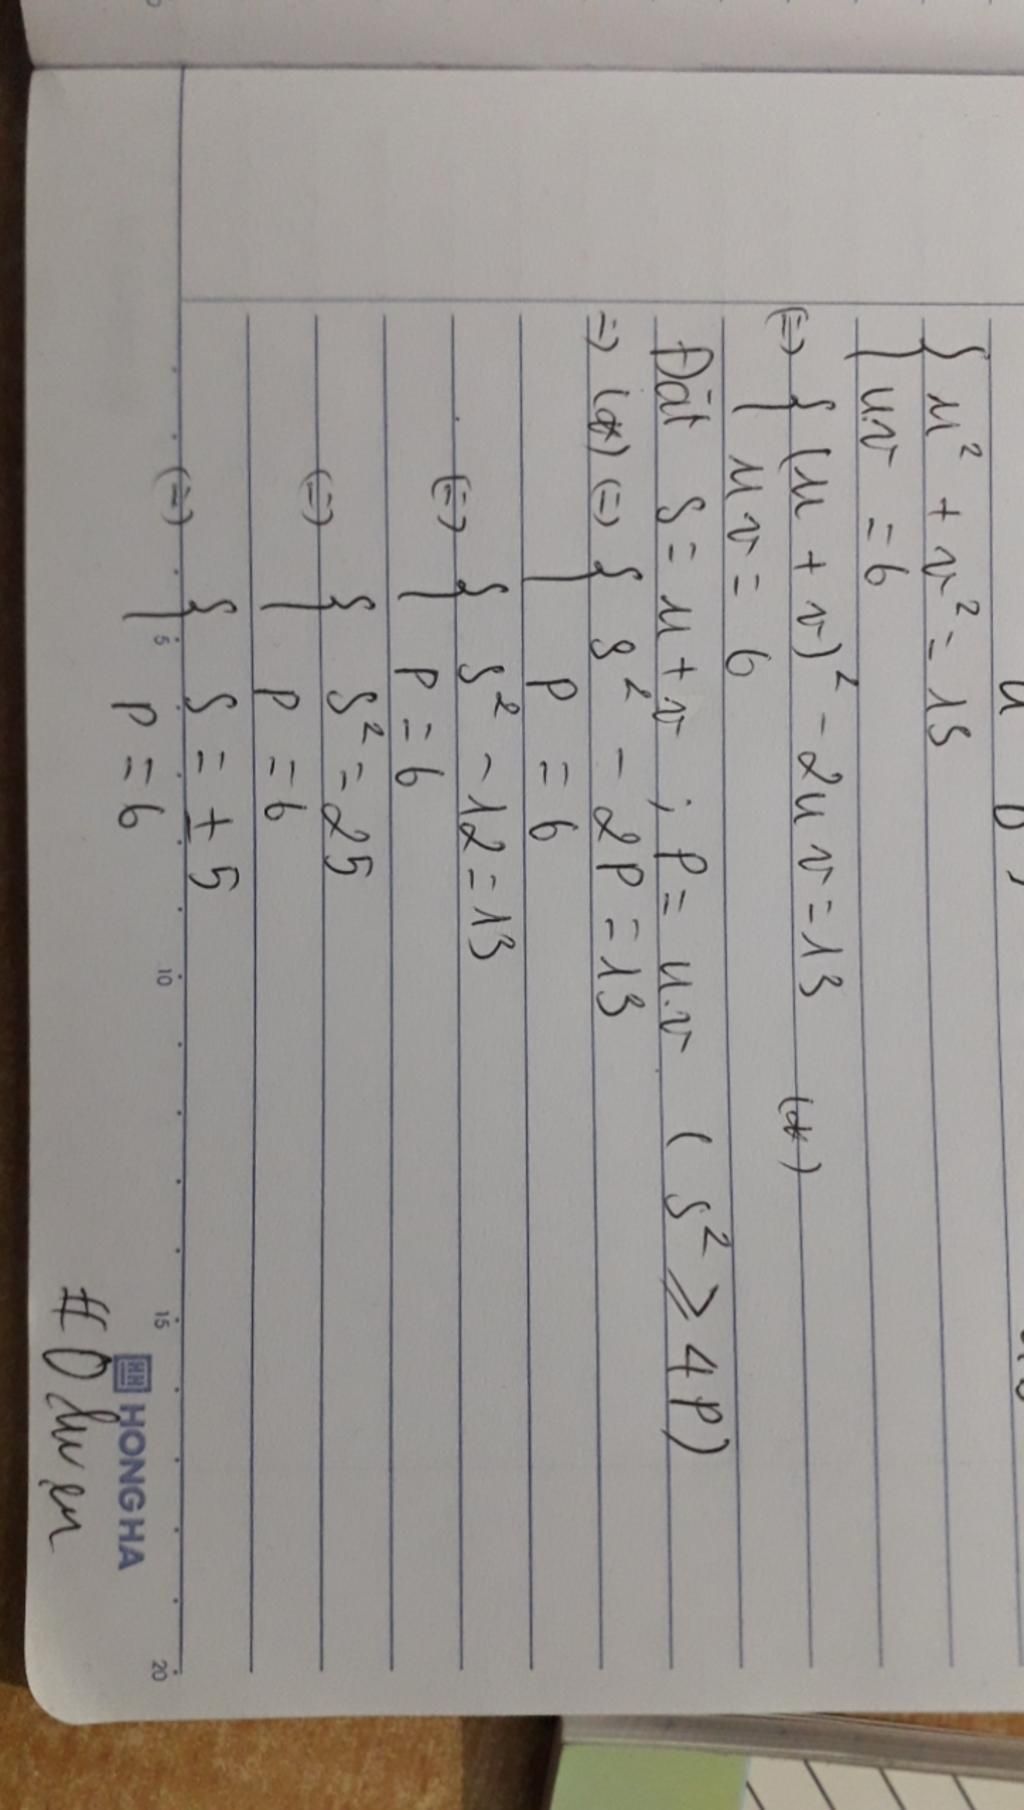 { u² + v² = 13
{ u.v = 6
(=) { (u + v)² - 2uv = 13 (*)
{ uv = 6
Đặt S = u + v ; P = u.v ( S² ⩾ 4P)
=) (*) (=) { S² - 2P = 13
{ P = 6
(=) { S² - 12 = 13
{ P = 6
(=) { S² = 25
{ P = 6
(=) { S = ± 5
{ P = 6
5 10 15 20
HONG HA